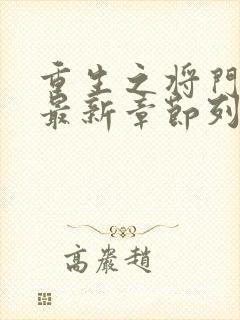 重生之将門
最新章節列
高嚴趙